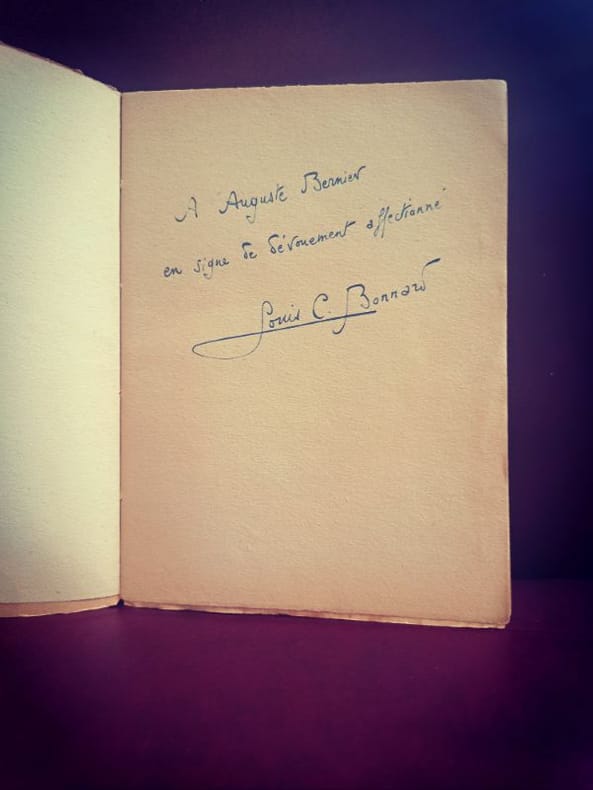 A Auguste Bernier
en signe de dévouement affectionné
Louis C. Bonnard